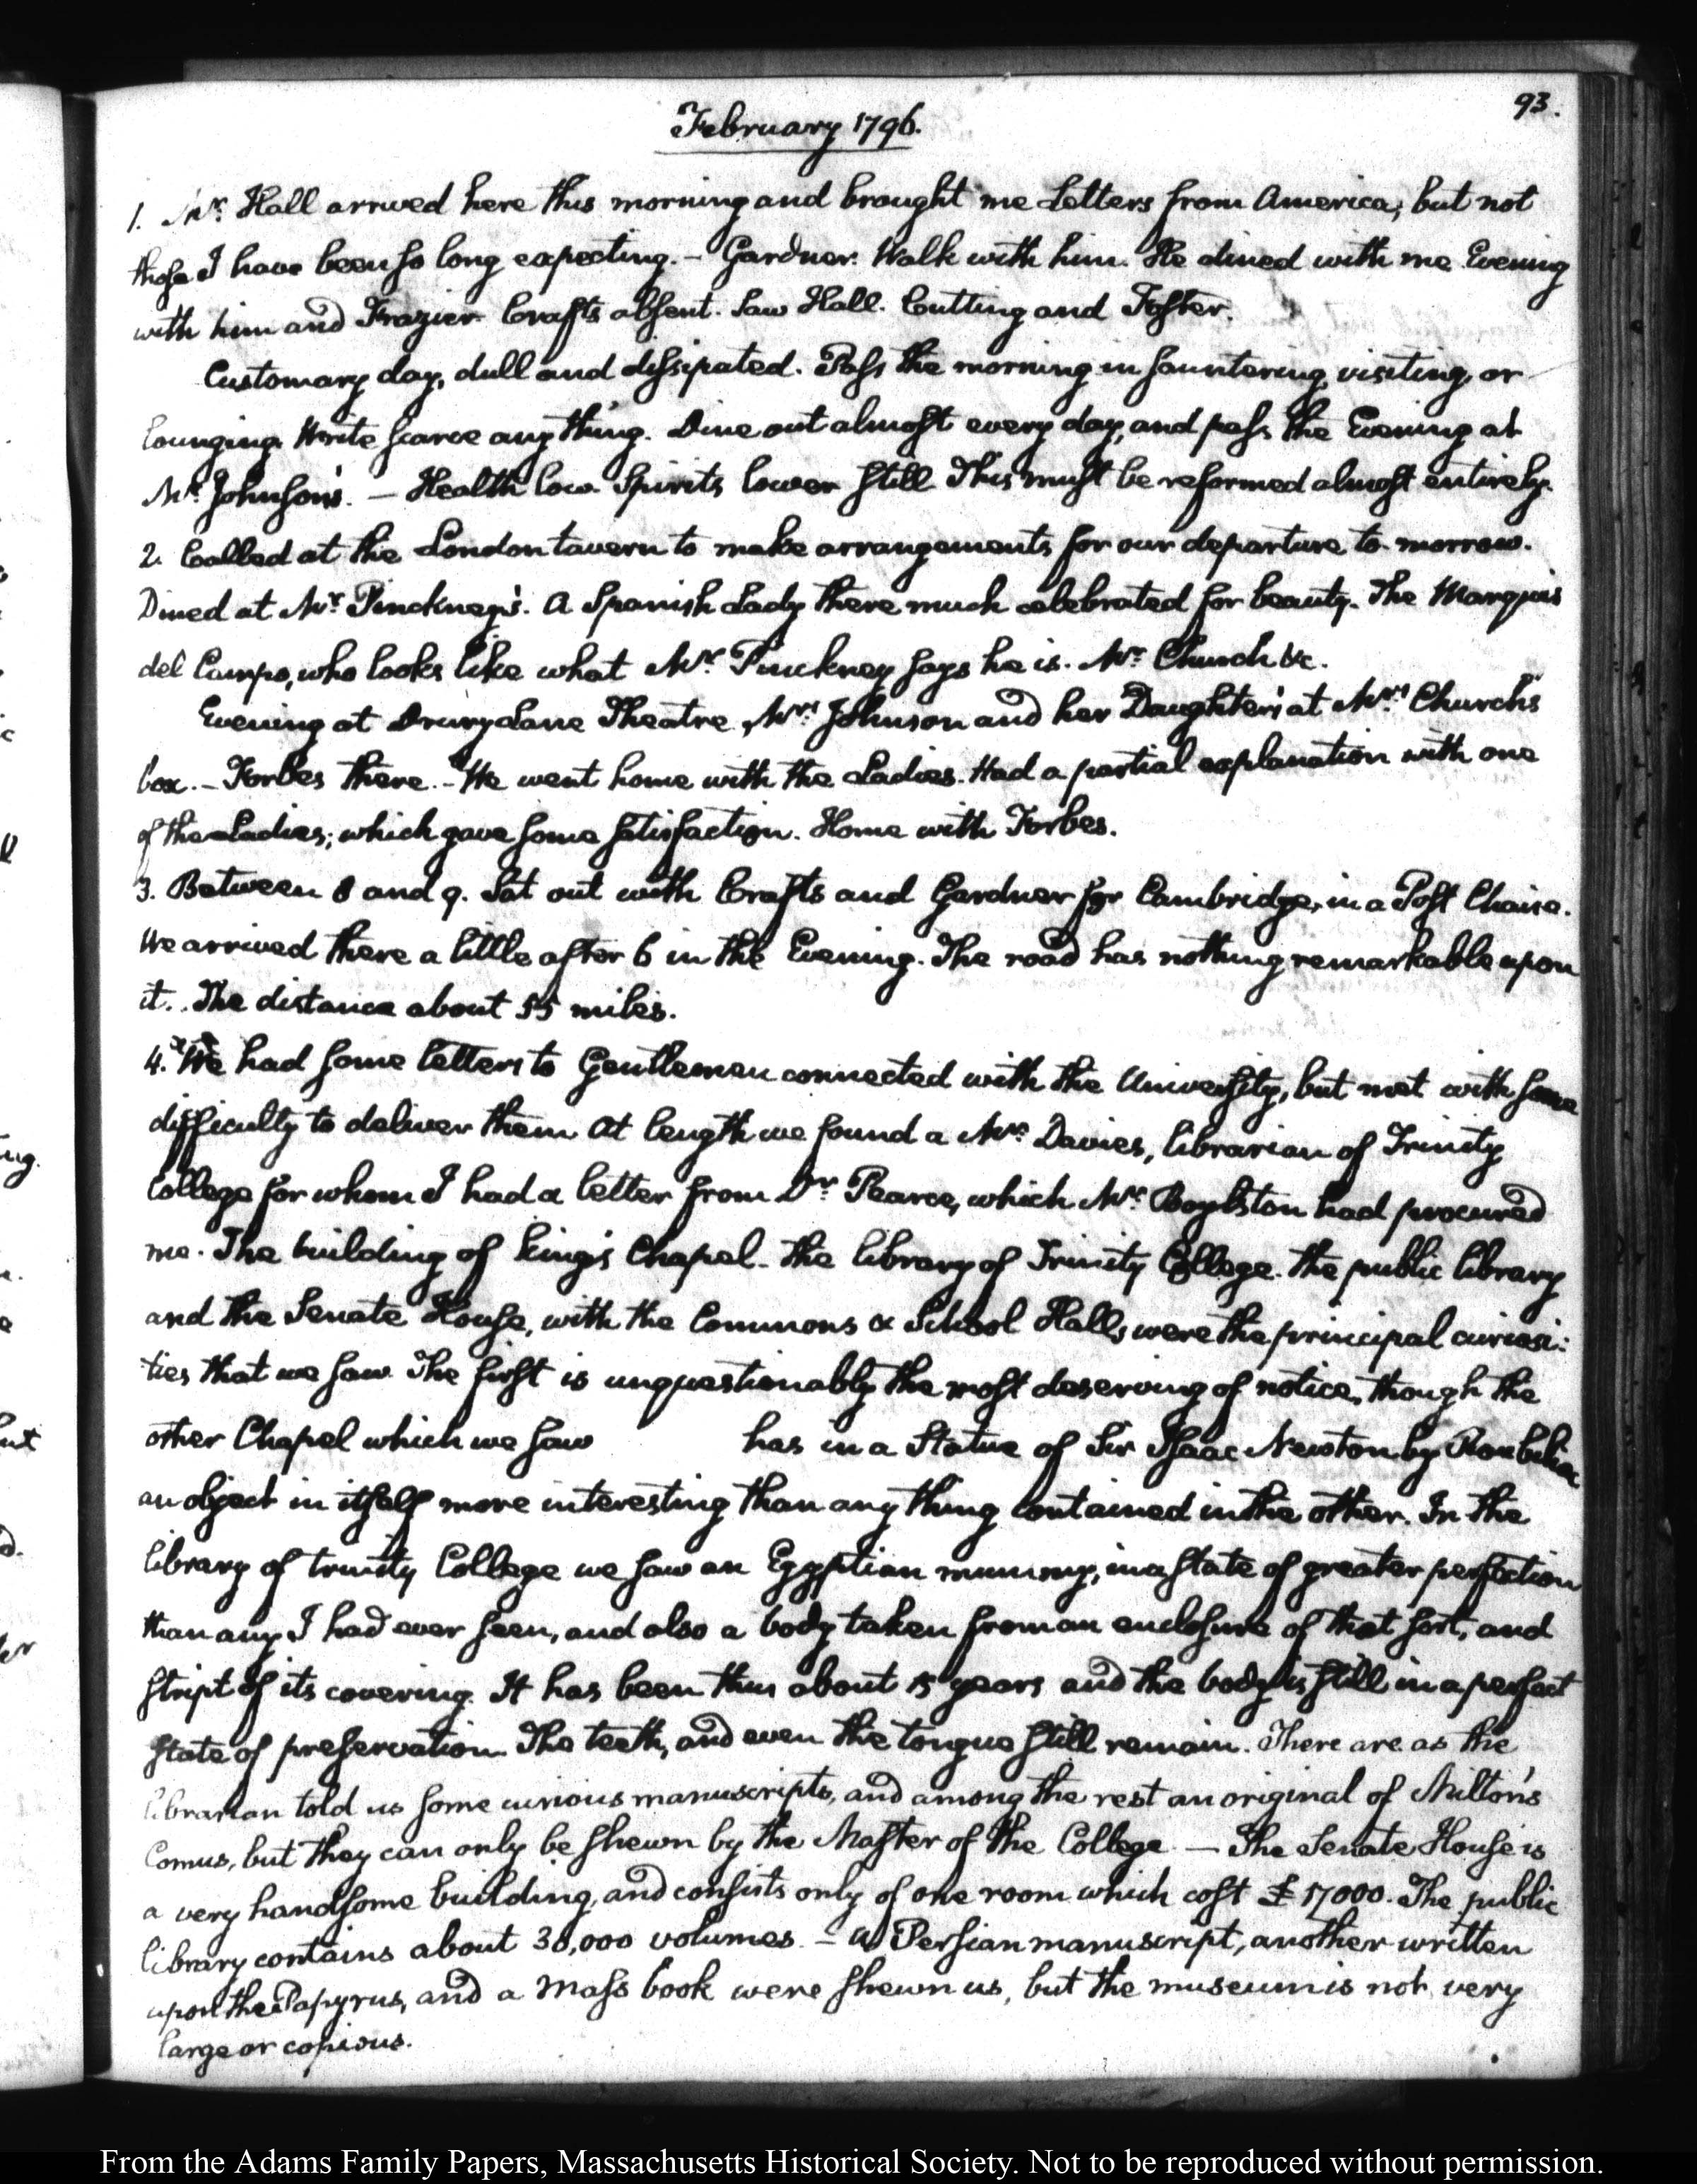 93.
February 1796.
1. Mr. Hall arrived here this morning and brought me Letters from America, but not
those I have been so long expecting. – Gardner. Walk with him. He dined with me Evening
with him and Frazier. Crafts absent. Saw Hall. Cutting and Foster.
Customary day, dull and dissipated. Pass the morning in sauntering, visiting, or
lounging. Write scarce any thing. Dine out almost every day, and pass the Evening at
Mr. Johnson's. – Health low. Spirits lower still. This must be reformed almost entirely.
2. Called at the London tavern to make arrangements for our departure to-morrow.
Dined at Mr. Pinckney's. A Spanish Lady there much celebrated for beauty. The Marquis
del Campo, who looks like what Mr. Pinckney says he is. Mr. Church &c.
Evening at Drury Lane Theatre. Mrs. Johnson and her Daughters at Mrs. Church's
box. – Forbes there. – We went home with the Ladies. Had a partial explanation with one
of the Ladies; which gave some satisfaction. Home with Forbes.
3. Between 8 and 9. Sat out with Crafts and Gardner for Cambridge, in a Post Chaise.
We arrived there a little after 6 in the Evening. The road has nothing remarkable upon
it. The distance about 55 miles.
4. We had some letters to Gentlemen connected with the University, but met with some
difficulty to deliver them. At length we found a Mr. Davies, librarian of Trinity
College for whom I had a letter from Dr. Pearce, which Mr. Boylston had procured
me. The building of King's Chapel. the library of Trinity College. the public library
and the Senate House, with the Commons & School Halls, were the principal curiosi:
ties that we saw. The first is unquestionably the most deserving of notice, though the
other Chapel which we saw has in a Statue of Sir Isaac Newton by Roubiliac
an object in itself more interesting than any thing contained in the other. In the
library of trinity College we saw an Egyptian mummy, in a state of greater perfection
than any I had ever seen, and also a body taken from an enclosure of that sort, and
stript of its covering. It has been thus about 15 years and the body is still in a perfect
state of preservation. The teeth, and even the tongue still remain. There are as the
librarian told us some curious manuscripts, and among the rest an original of Milton's
Comus, but they can only be shewn by the Master of the College. – The Senate House is
a very handsome building, and consists only of one room which cost £17000. The public
library contains about 30,000 volumes. – A Persian manuscript, another written
upon the Papyrus, and a Mass book were shewn us, but the museum is not very
large or copious.
From the Adams Family Papers, Massachusetts Historical Society. Not to be reproduced without permission.